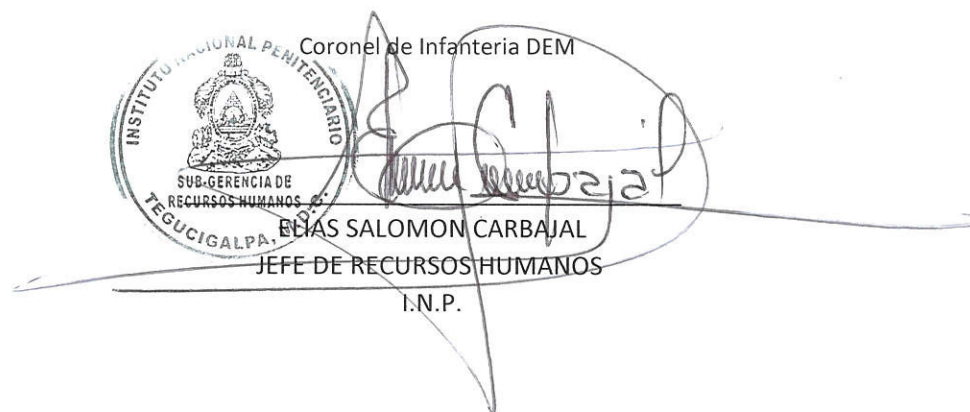 Coronel de Infanteria DEM
INSTITUTO NACIONAL PENITENCIARIO
SUB-GERENCIA DE
RECURSOS HUMANOS
TEGUCIGALPA, M.D.C.
Carbajal
ELIAS SALOMON CARBAJAL
JEFE DE RECURSOS HUMANOS
I.N.P.